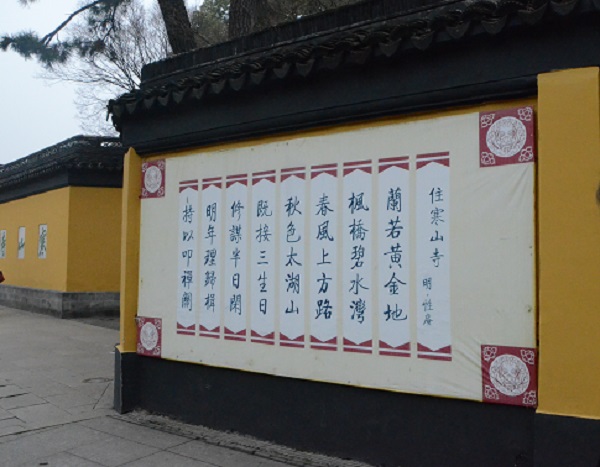 住寒山寺 明·性庵
蘭若黃金地
楓橋碧水灣
春風上方路
秋色太湖山
既接三生日
修謀半日閑
明年理歸楫
持以叩禪關
寒
山